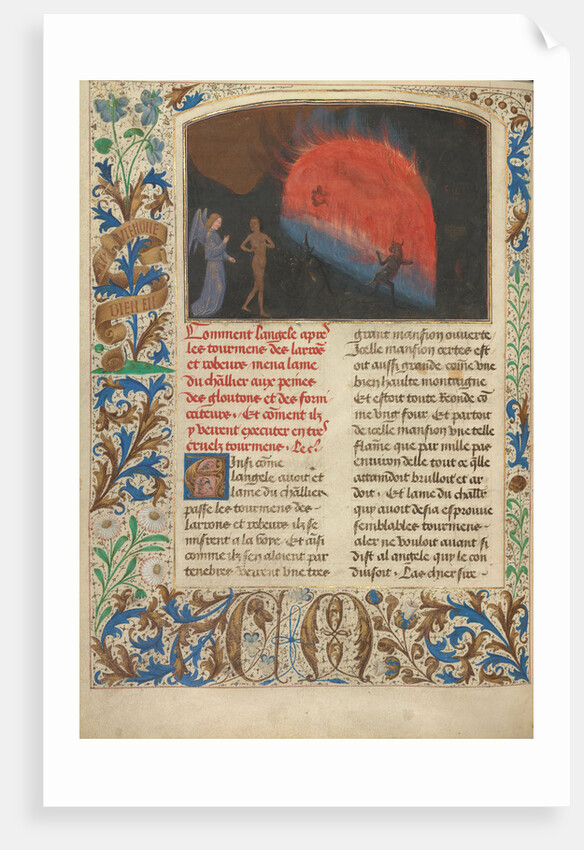 BIEN EN
Comment langele apres
les tourmens des larrons
et robeurs mena lame
du chllier aux peines
des gloutons et des forni
cateurs. Et coment ilz
y veirent executer en tres
cruelz tourmens. Le c.
Ainsi come
langele auoit et
lame du chllier
passe les tourmens des
larrons et robeurs ilz se
misrent a la voye. Et ausi
comme ilz sen aloient par
tenebres veirent vne tres
grant mansion ouuerte
Icelle mansion certes est
oit aussi grande come vne
bien haulte montaigne
Et estoit toute Ronde co
me vng four. Et partoit
de icelle mansion vne telle
flame que par mille pas
enuiron delle tout ce qlle
attaindoit brulloit et ar
doit. Et lame du chllr
qui auoit desia esprouue
semblables tourmens
aler ne vouloit auant si
dist al angele qui le con
duisoit. Las chier sire
CM